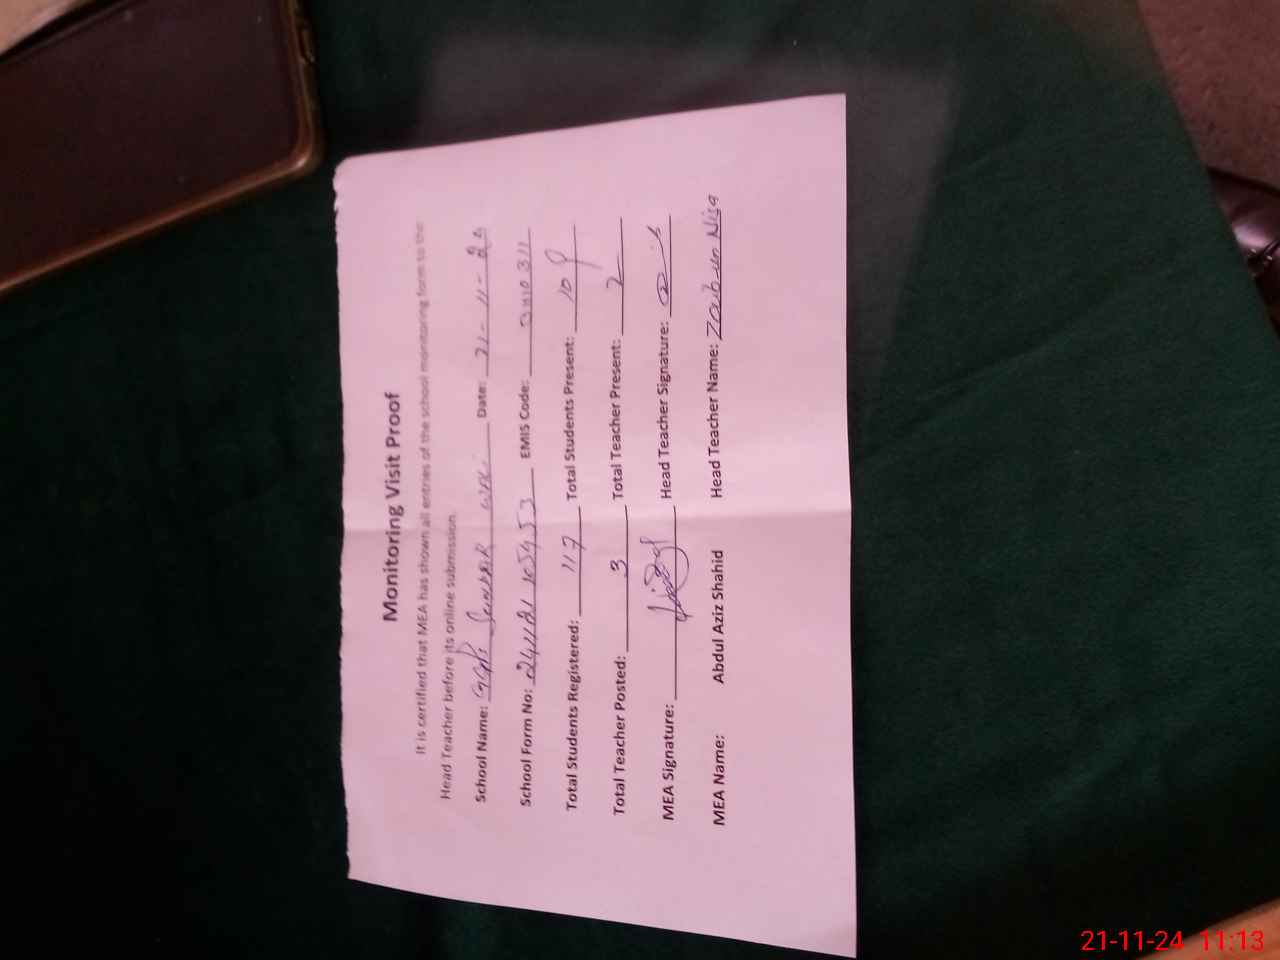 Monitoring Visit Proof
It is certified that MEA has shown all entries of the school monitoring form to the
Head Teacher before its online submission.
School Name: GGPS Date: 21-11-24
School Form No: EMIS Code:
Total Students Registered: 117 Total Students Present: 109
Total Teacher Posted: 3 Total Teacher Present: 2
MEA Signature: Head Teacher Signature:
MEA Name: Abdul Aziz Shahid Head Teacher Name: Zaib-un Nisa
21-11-24 11:13